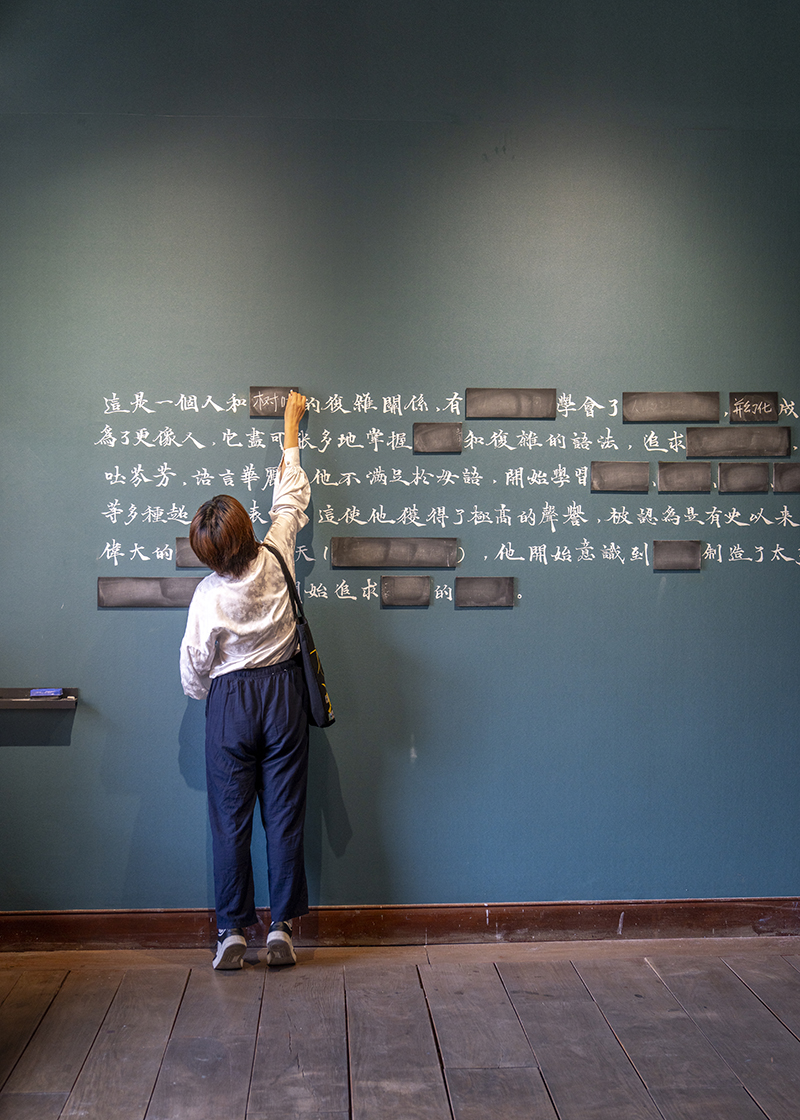 這是一個人和树的復雜關係,有學會了,并幻化成
為了更像人,它盡可能多地掌握和復雜的語法,追求
吐芬芳,語言華麗他不滿足於母語,開始學習、、、
等多種起表這使他獲得了極高的聲譽,被認為是有史以來
偉大的天(),他開始意識到創造了太
始追求的。